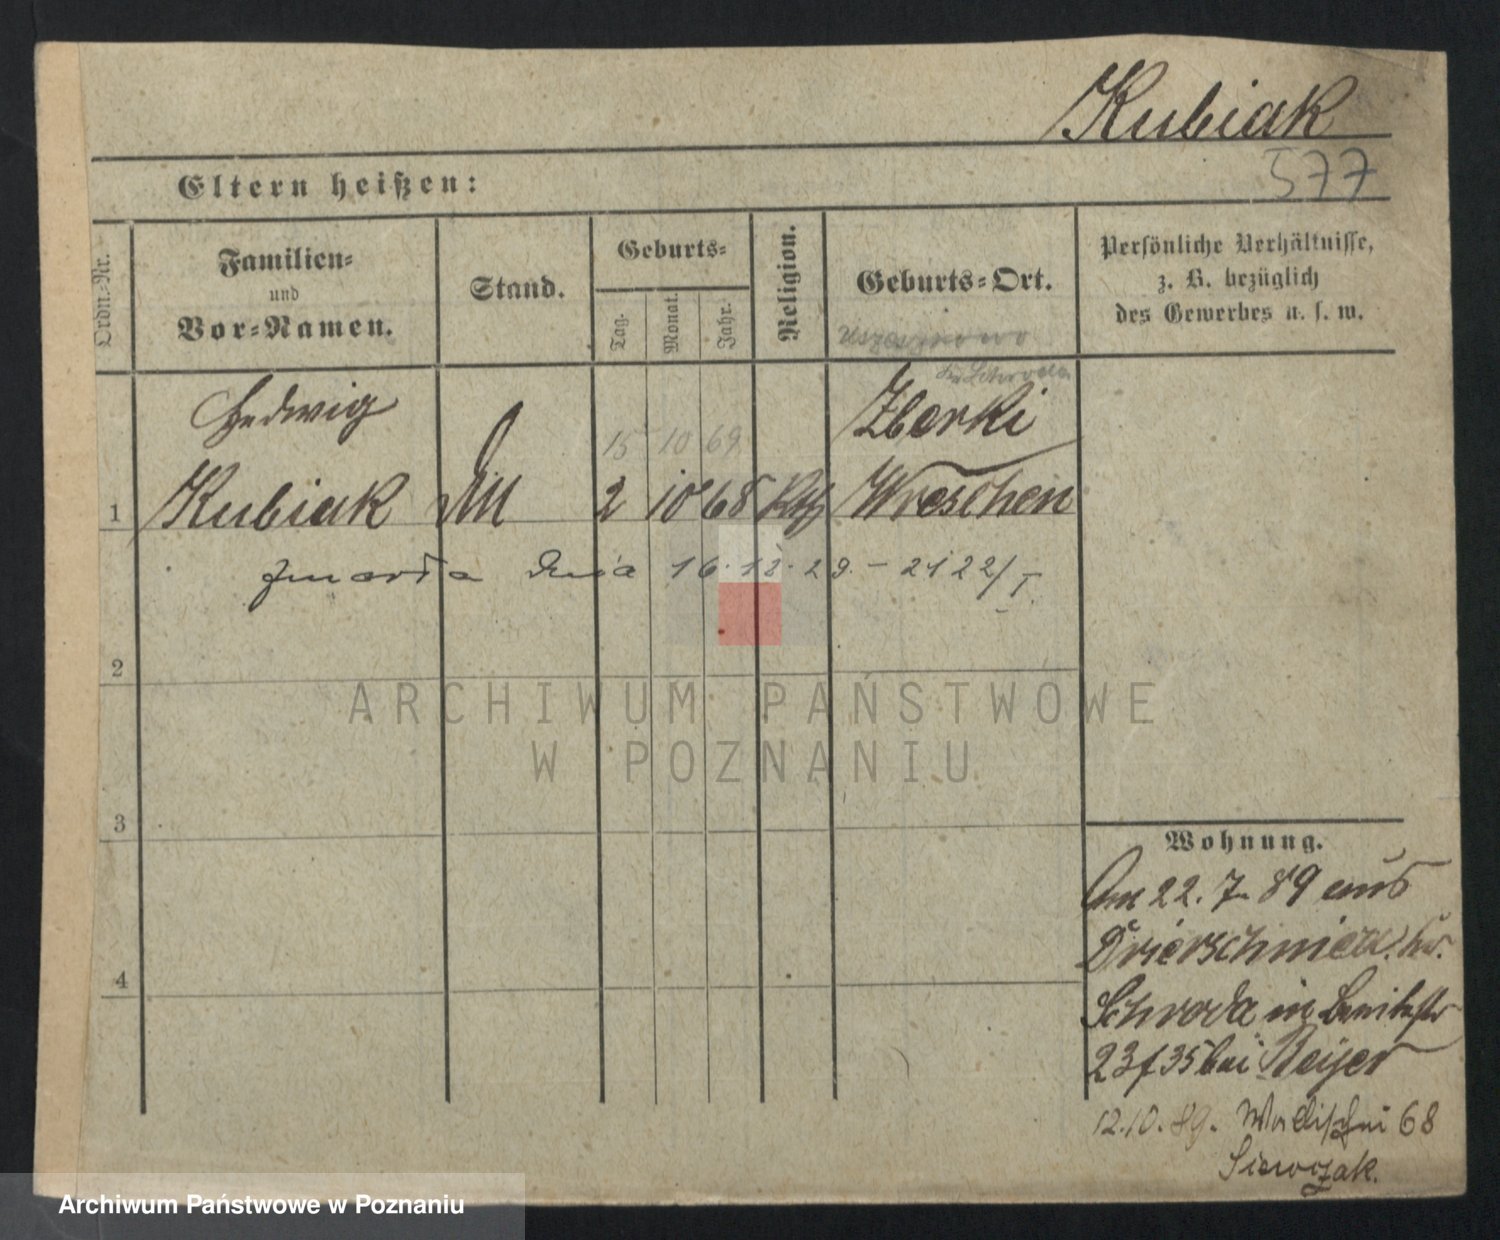 Kubiak
577
Eltern heißen:
Ordn.-Nr.
Familien-
und
Vor-Namen.
Stand.
Geburts-
Tag.
Monat.
Jahr.
Religion.
Geburts-Ort.
Persönliche Verhältnisse,
z. B. bezüglich
des Gewerbes u. s. w.
Hedwig
15 10 69
Zberki
1
Kubiak
2 10 68 Kth Wreschen
zmarła dnia 16.12.29. – 2122/I.
2
3
4
ARCHIWUM PAŃSTWOWE
W POZNANIU
Wohnung.
Am 22. 7. 89 aus
Schroda in
23/35 bei
12.10.89. Wallischei 68
Siewczak.
Archiwum Państwowe w Poznaniu